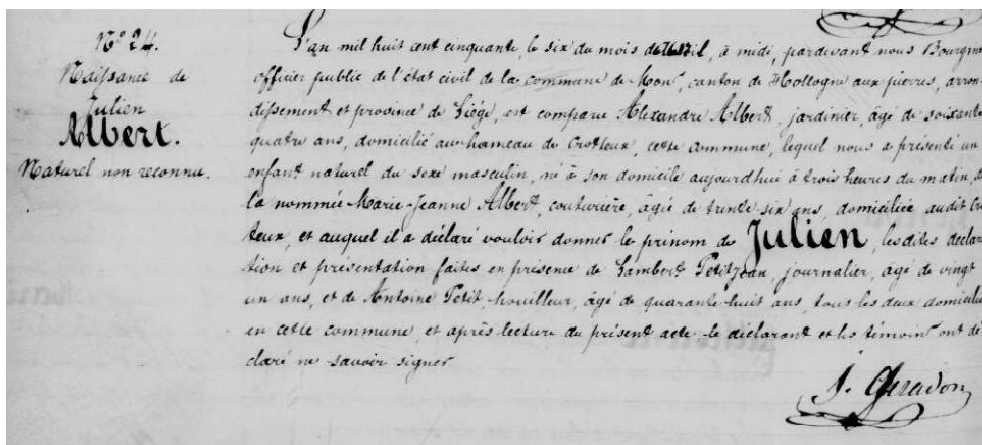 N° 24.
Naissance de
Julien
Albert.
Naturel non reconnu.
L'an mil huit cent cinquante, le six du mois d'avril, à midi, pardevant nous Bourgm
officier public de l'état civil de la commune de Mons, canton de Hollogne aux pierres, arron
dissement et province de Liége, est comparu Alexandre Albert, jardinier, âgé de soixante
quatre ans, domicilié au hameau de Crotteux, cette commune, lequel nous a présenté un
enfant naturel du sexe masculin, né à son domicile aujourdhui à trois heures du matin, d
la nommée Marie-Jeanne Albert, couturière, âgée de trente six ans, domiciliée audit Cro
teux, et auquel il a déclaré vouloir donner le prénom de Julien, lesdites déclara
tion et présentation faites en présence de Lambert Petitjean, journalier, âgé de vingt
un ans, et de Antoine Petit, houilleur, âgé de quarante huit ans, tous les deux domicilié
en cette commune, et après lecture du présent acte le déclarant et les témoins ont dé
claré ne savoir signer
J. Géradon